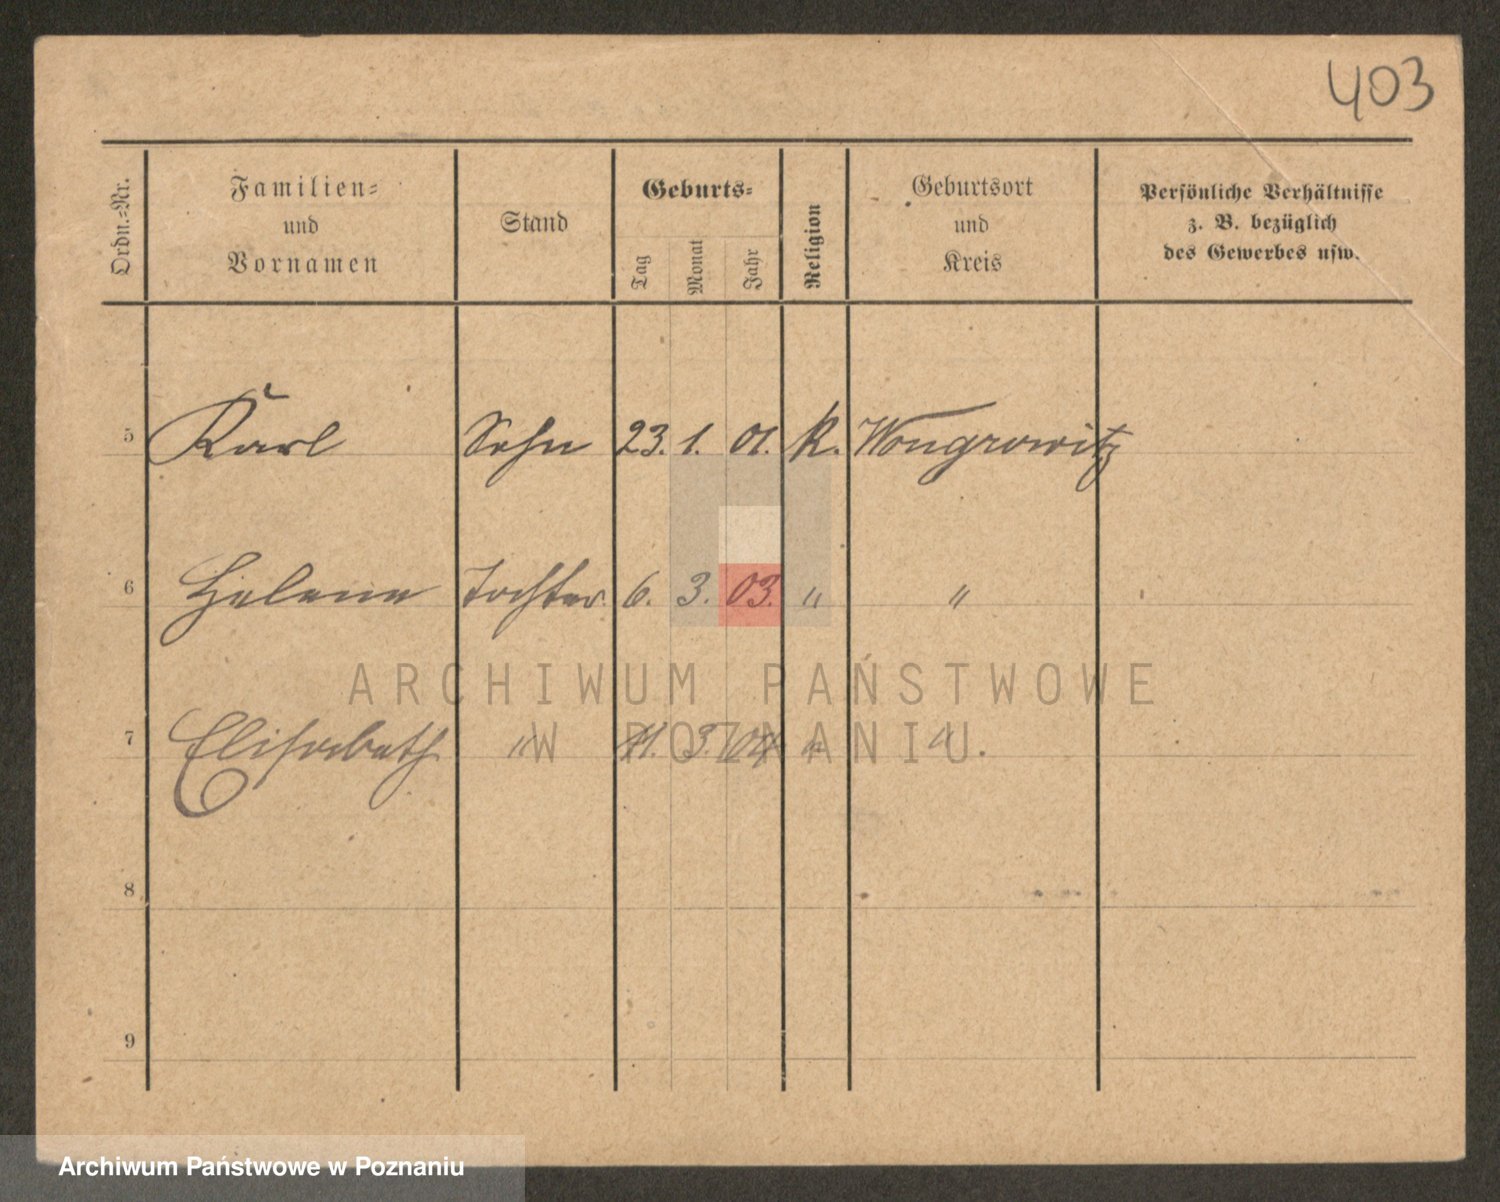 403
Ordn.=Nr.
Familien=
und
Vornamen
Stand
Geburts=
Tag
Monat
Jahr
Religion
Geburtsort
und
Kreis
Persönliche Verhältnisse
z. B. bezüglich
des Gewerbes usw.
5 Karl Sohn 23. 1. 01. k. Wongrowitz
6 Helene Tochter 6. 3. 03. " "
ARCHIWUM PAŃSTWOWE
W POZNANIU.
7 Elisabeth " 3. 04 " "
8
9
Archiwum Państwowe w Poznaniu